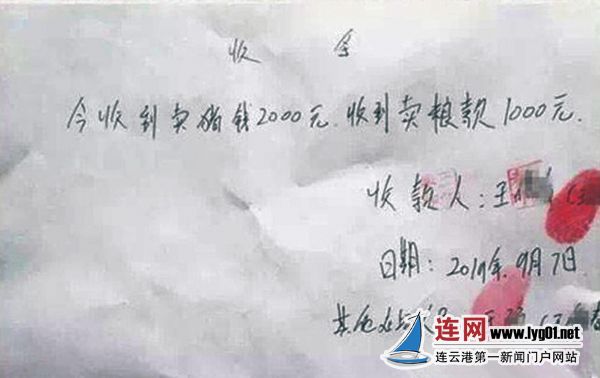 收 条
今收到卖猪钱2000元.收到卖粮款1000元.
收款人:王
日期:2019年.9月7日
其他
连网 www.lyg01.net
连云港第一新闻门户网站